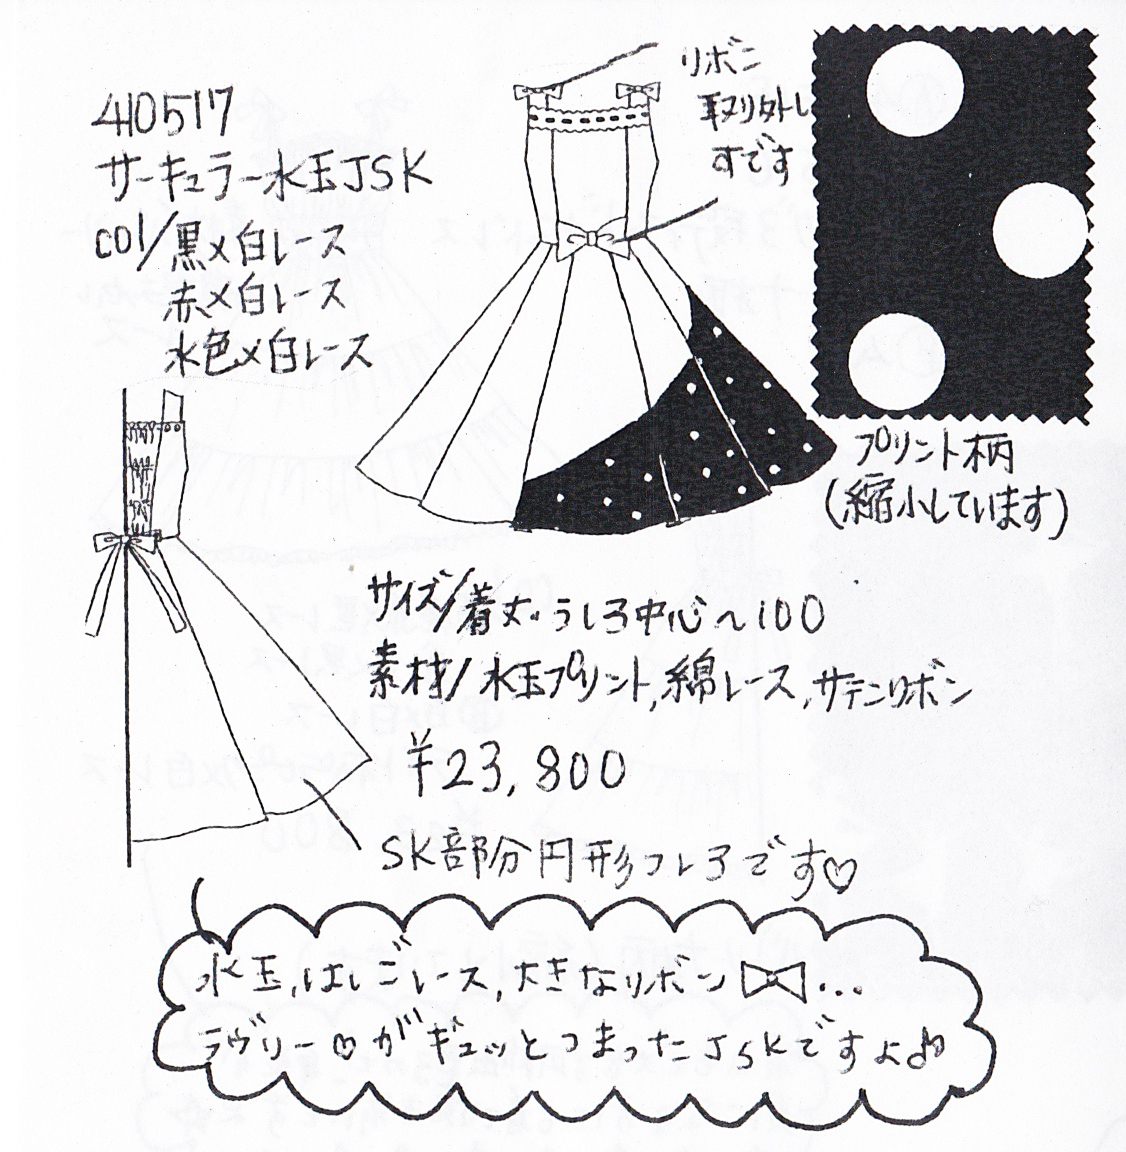 410517
サーキュラー水玉JSK
col/黒×白レース
赤×白レース
水色×白レース
リボン
取り外し
すです
プリント柄
(縮小しています)
サイズ/着丈・うしろ中心〜100
素材/水玉プリント,綿レース,サテンリボン
¥23,800
SK部分円形フレアです♡
水玉,はしごレース,大きなリボン...
ラヴリー♡がギュッとつまったJSKですよ♪